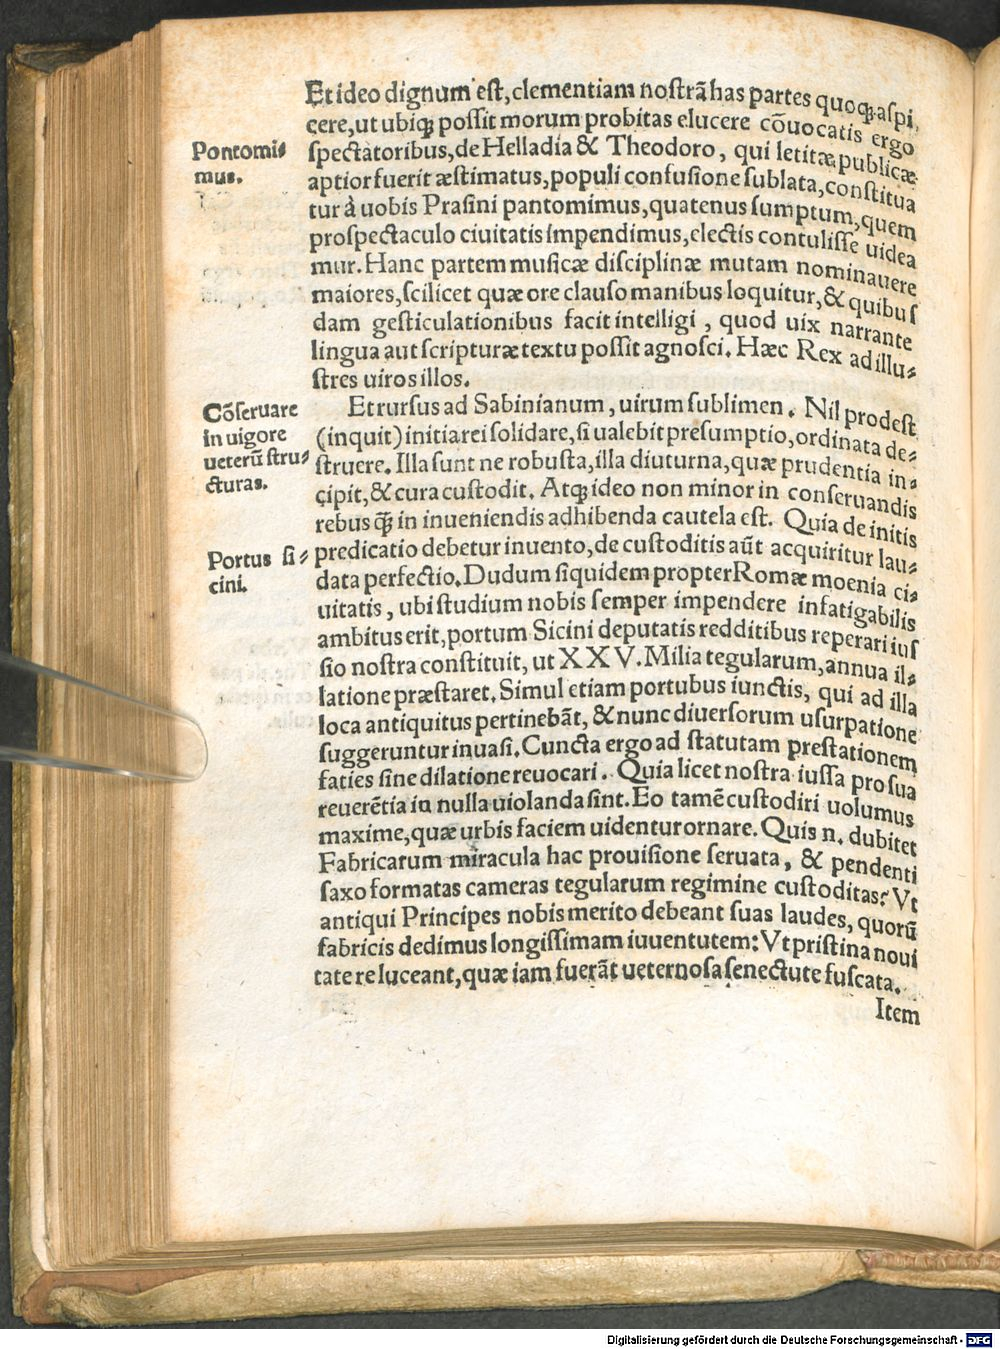 Et ideo dignum est, clementiam nostrā has partes quoqꝫ aspi
cere, ut ubiqꝫ possit morum probitas elucere cōuocatis ergo
spectatoribus, de Helladia & Theodoro, qui letitæ publicæ
aptior fuerit æstimatus, populi confusione sublata, constitua
tur à uobis Prasini pantomimus, quatenus sumptum, quem
pro spectaculo ciuitatis impendimus, electis contulisse uidea
mur. Hanc partem musicæ disciplinæ mutam nominauere
maiores, scilicet quæ ore clauso manibus loquitur, & quibus
dam gesticulationibus facit intelligi, quod uix narrante
lingua aut scripturæ textu possit agnosci. Hæc Rex ad illu⸗
stres uiros illos.
Et rursus ad Sabinianum, uirum sublimen. Nil prodest
(inquit) initia rei solidare, si ualebit presumptio, ordinata de⸗
struere. Illa sunt ne robusta, illa diuturna, quæ prudentia in⸗
cipit, & cura custodit. Atqꝫ ideo non minor in conseruandis
rebus qꝫ̃ in inueniendis adhibenda cautela est. Quia de initis
predicatio debetur inuento, de custoditis aūt acquiritur lau⸗
data perfectio. Dudum siquidem propter Romæ moenia ci⸗
uitatis, ubi studium nobis semper impendere infatigabilis
ambitus erit, portum Sicini deputatis redditibus reperari ius
sio nostra constituit, ut XXV. Milia tegularum, annua il⸗
latione præstaret. Simul etiam portubus iunctis, qui ad illa
loca antiquitus pertinebāt, & nunc diuersorum usurpatione
suggeruntur inuasi. Cuncta ergo ad statutam prestationem
faties sine dilatione reuocari. Quia licet nostra iussa pro sua
reuerētia in nulla uiolanda sint. Eo tamē custodiri uolumus
maxime, quæ urbis faciem uidentur ornare. Quis n. dubitet
Fabricarum miracula hac prouisione seruata, & pendenti
saxo formatas cameras tegularum regimine custoditas? Vt
antiqui Principes nobis merito debeant suas laudes, quorū
fabricis dedimus longissimam iuuentutem: Vt pristina noui
tate reluceant, quæ iam fuerāt ueternosa senectute fuscata.
Item
Pontomi⸗
mus.
Cōseruare
in uigore
ueterū stru⸗
cturas.
Portus si⸗
cini.
Digitalisierung gefördert durch die Deutsche Forschungsgemeinschaft - DFG